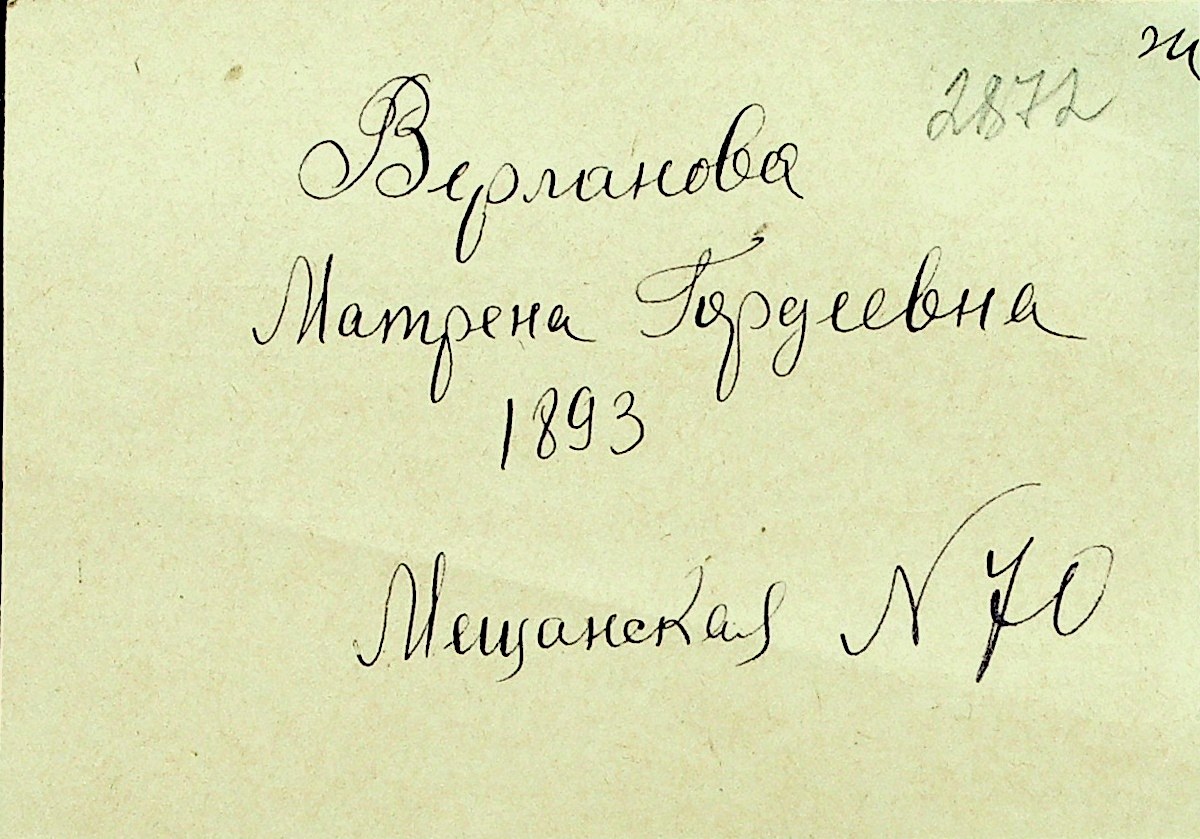 ж
2872
Верланова
Матрена Гордеевна
1893
Мещанская N 70